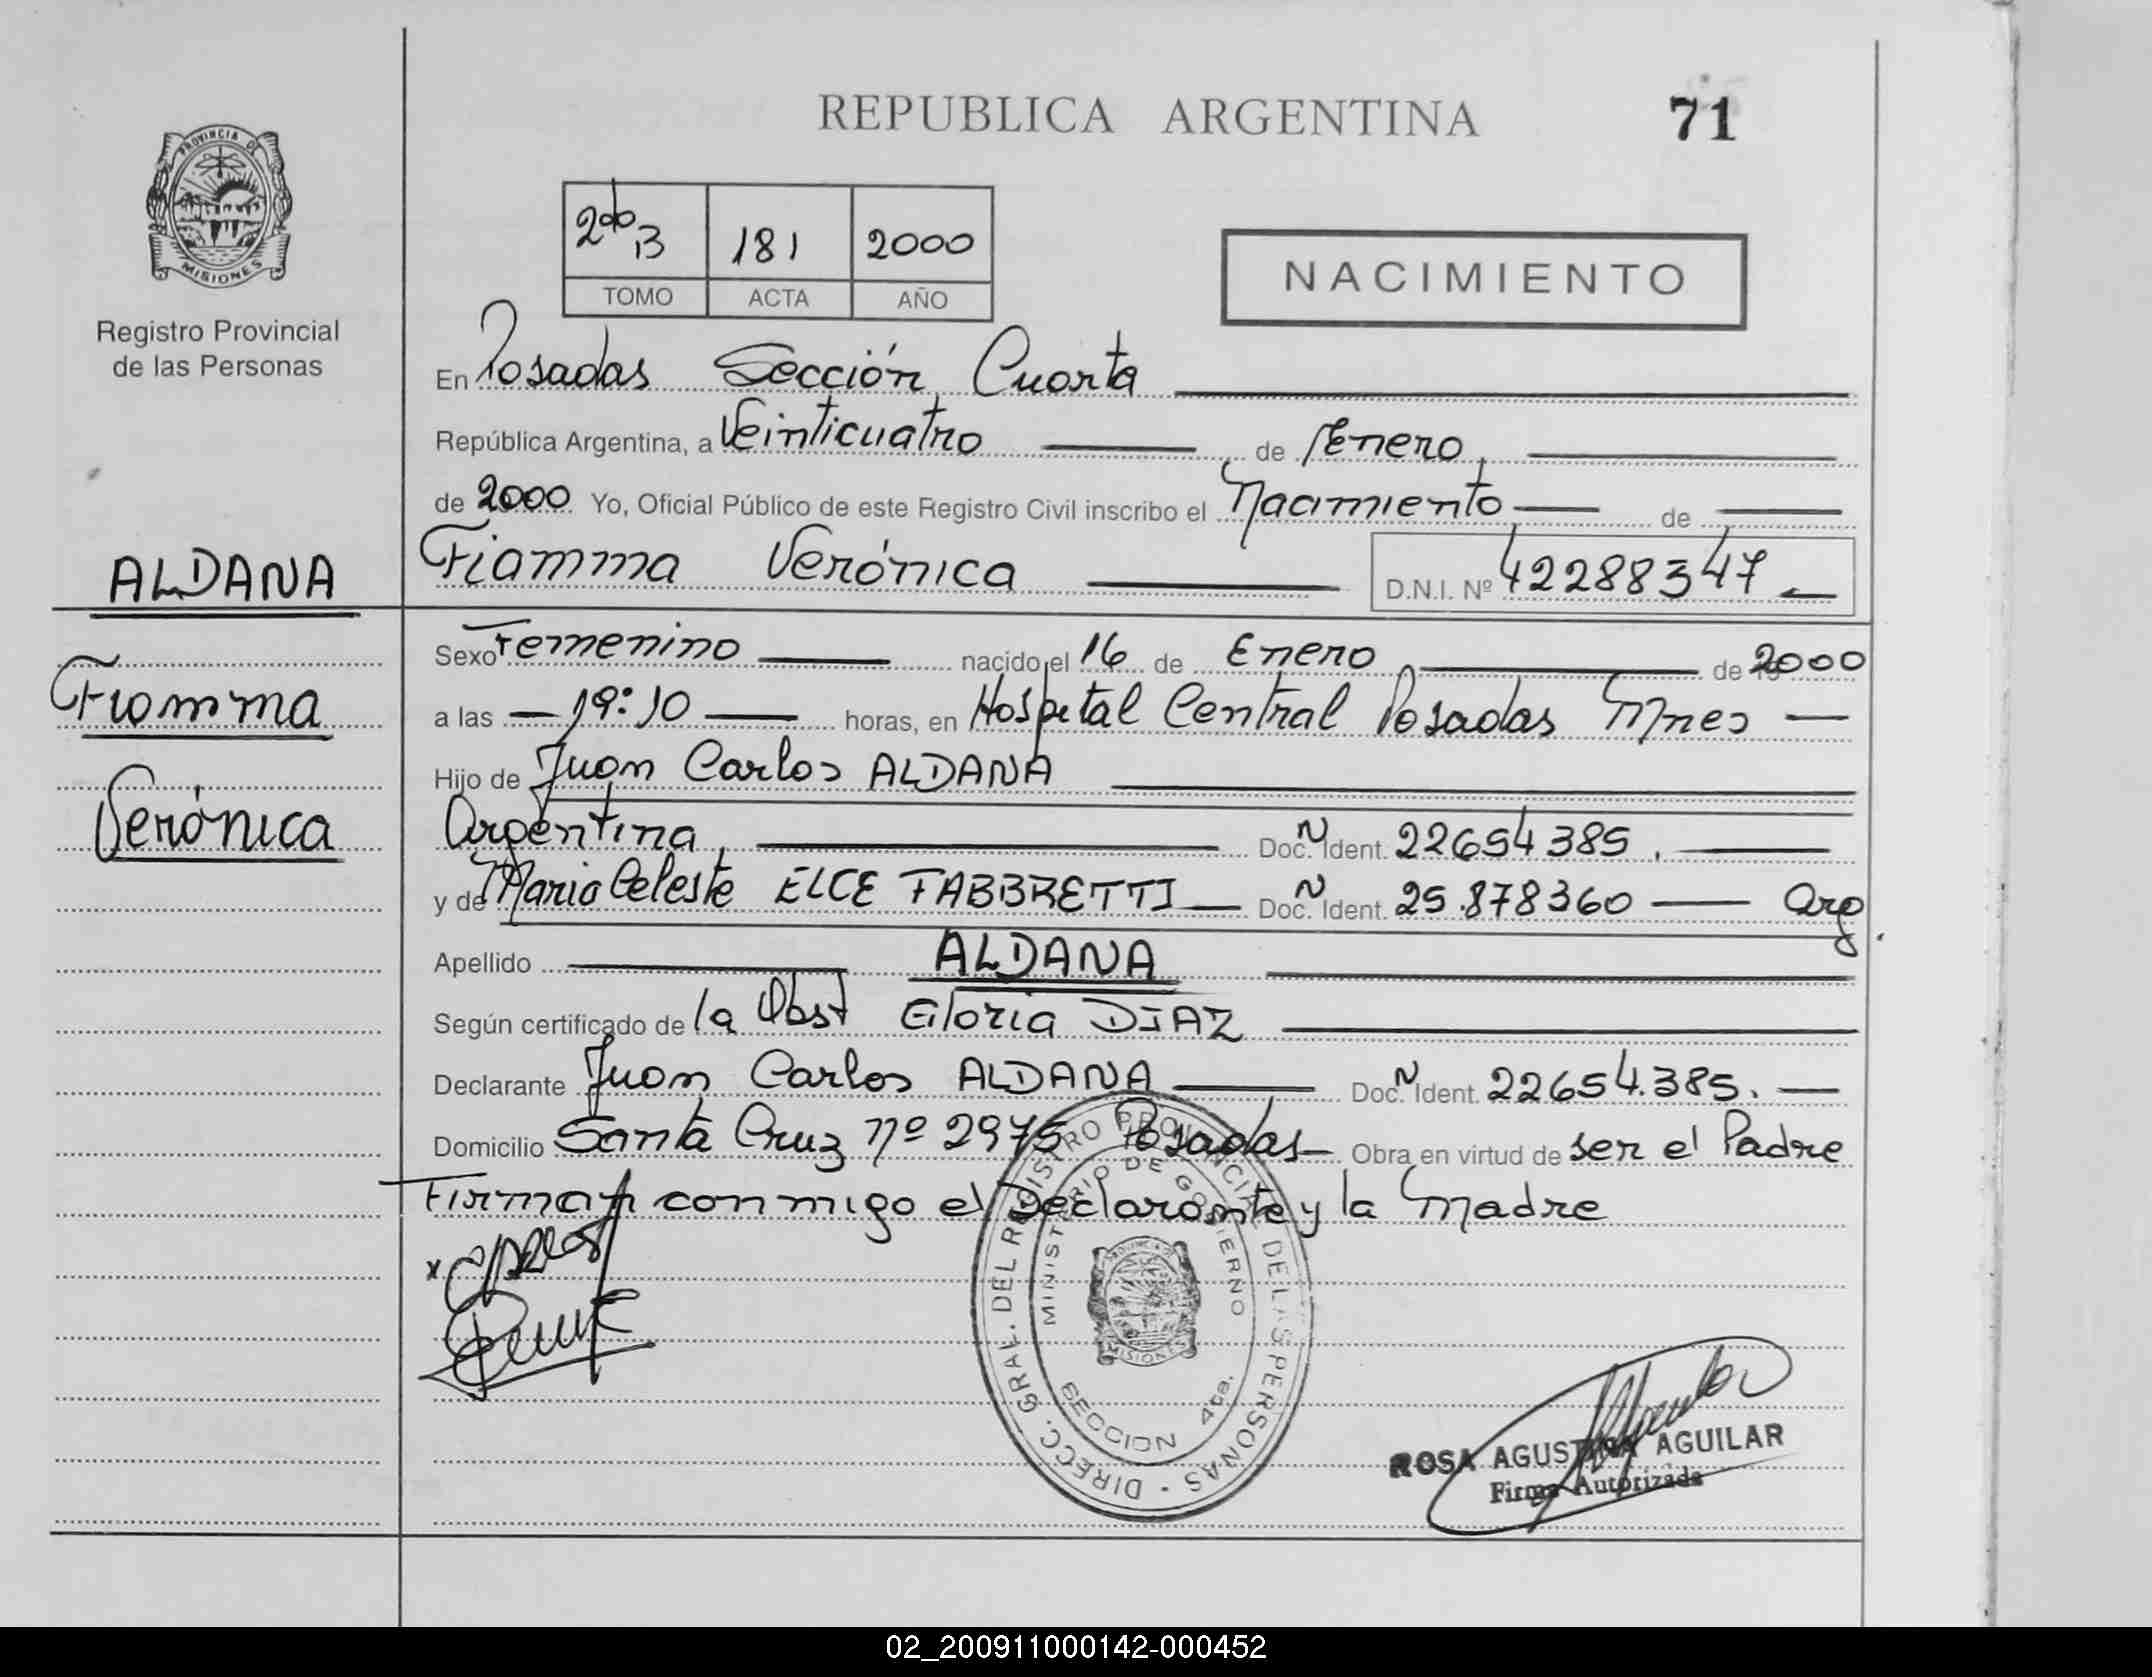 REPUBLICA ARGENTINA
71
PROVINCIA DE
MISIONES
Registro Provincial
de las Personas
2do B 181 2000
TOMO ACTA AÑO
NACIMIENTO
En Posadas Sección Cuarta
República Argentina, a Veinticuatro de Enero
de 2000 Yo, Oficial Público de este Registro Civil inscribo el Nacimiento de
Fiamma Verónica D.N.I. Nº 42288347
ALDANA
Fiamma
Verónica
Sexo Femenino nacido el 16 de Enero de 2000
a las 19:10 horas, en Hospital Central Posadas Mnes
Hijo de Juan Carlos ALDANA
Argentina Doc. N Ident. 22654385.
y de Maria Celeste ELCE FABBRETTI Doc. N Ident. 25.878360 Arg.
Apellido ALDANA
Según certificado de la Obst Gloria DIAZ
Declarante Juan Carlos ALDANA Doc. N Ident. 22654.385.
Domicilio Santa Cruz nº 2975 Posadas Obra en virtud de ser el Padre
Firman conmigo el Declarante y la Madre
DIRECC. GRAL. DEL REGISTRO PROVINCIAL DE LAS PERSONAS
MINISTERIO DE GOBIERNO
MISIONES
SECCION 4ta.
ROSA AGUSTINA AGUILAR
Firma Autorizada
02_200911000142-000452